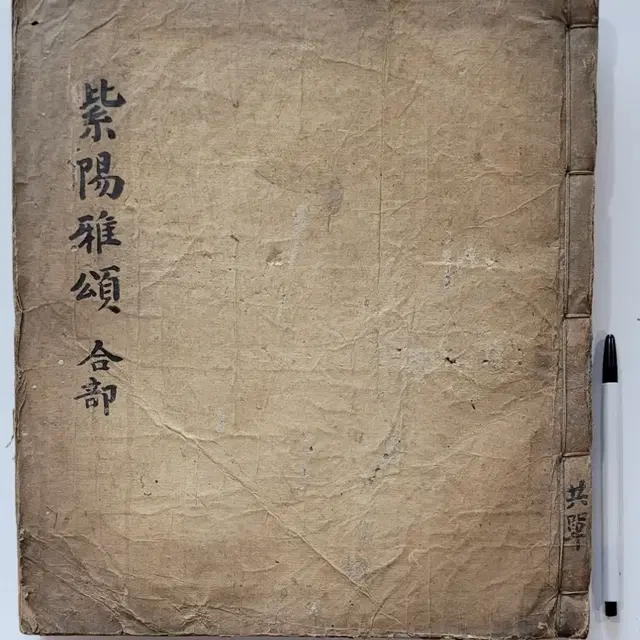 紫陽雅頌 合部
共單